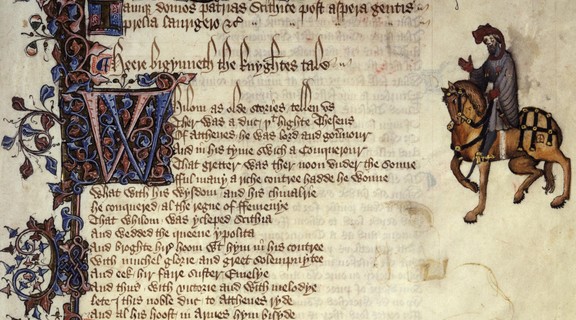 Iamque domos patrias Scithice post aspera gentis
prelia laurigero &c
Heere bigynneth the knyghtes tale
Whilom as olde stories tellen vs
Ther was a duc þt highte Theseus
Of Atthenes he was lord and gouernour
And in his tyme swich a Conquerour
That gretter was ther noon vnder the sonne
fful many a riche contree hadde he wonne
What with his wysdom and his chiualrie
he conquered al the regne of ffemenye
That whilom was ycleped Scithia
And wedded the queene ypolita
And broghte hire hoom wt hym in his contree
With muchel glorie and greet solempnytee
And eek hir faire suster Emelye
And thus with victorie and with melodye
lete I this noble duc to Atthenes ryde
And al his hoost in Armes hym bisyde